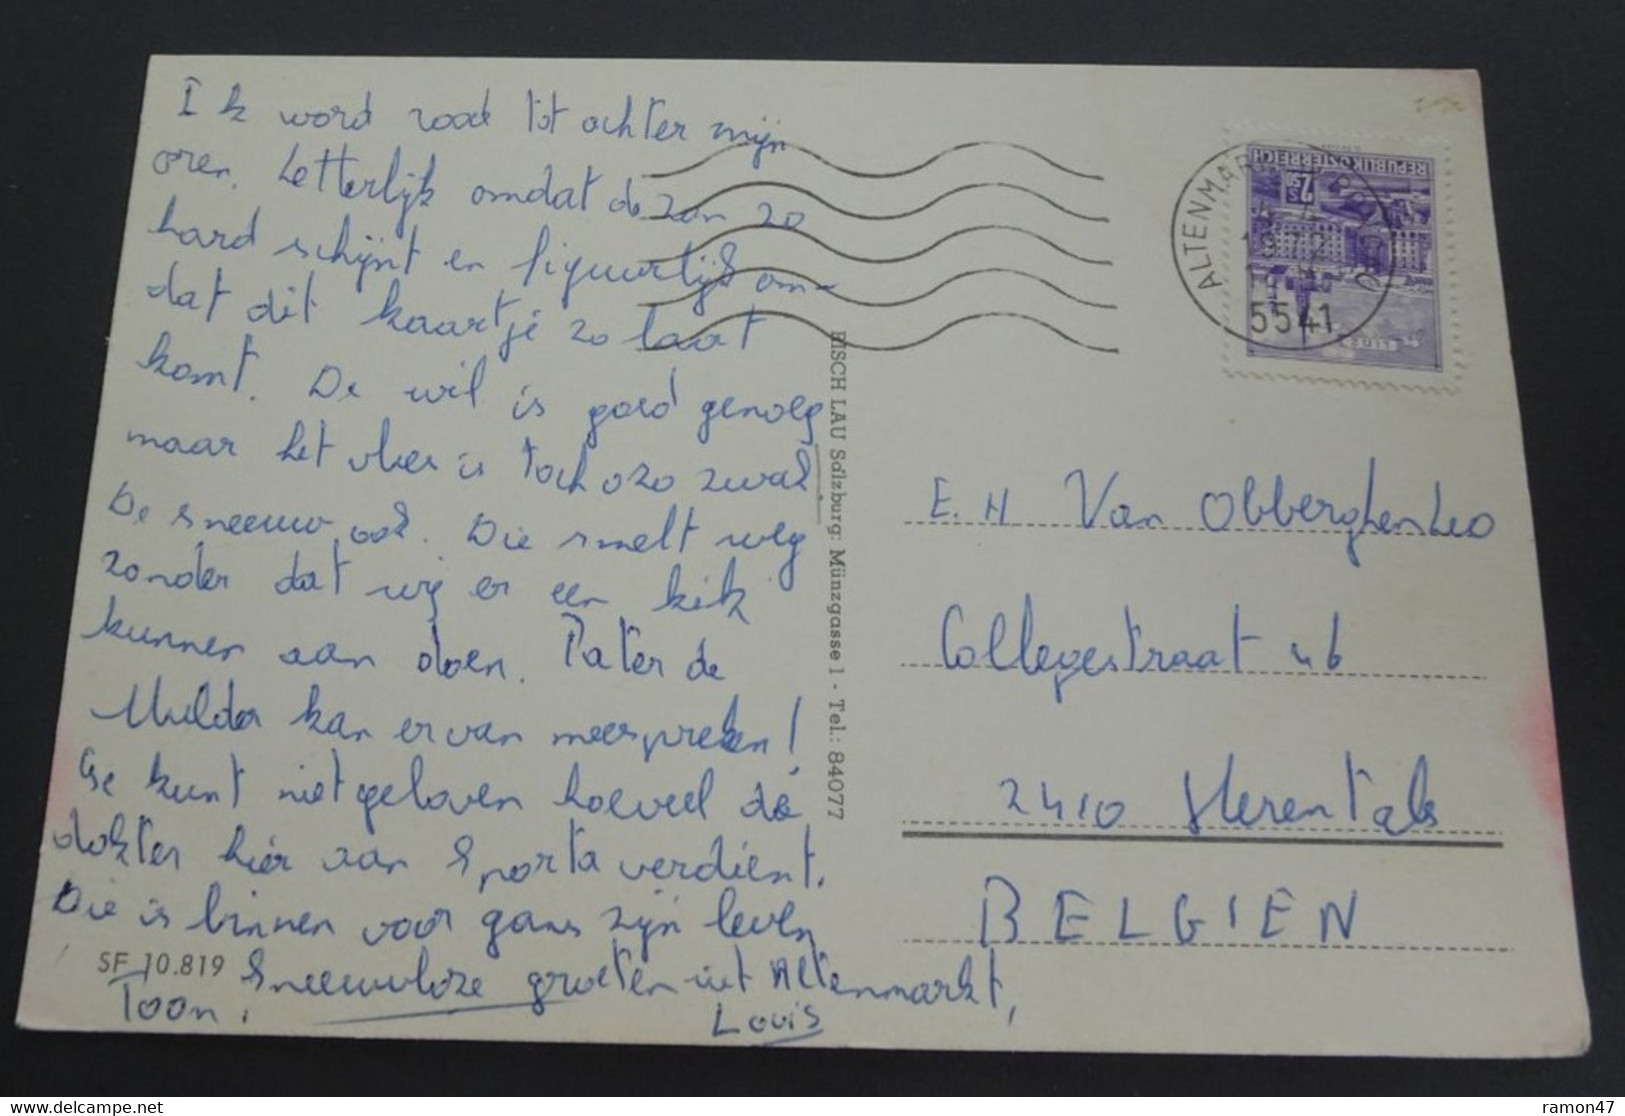 Ik word rood tot achter mijn
oren. Letterlijk omdat de zon zo
hard schijnt en figuurlijk om-
dat dit kaartje zo laat
komt. De wil is goed genoeg
maar het vlees is toch ozo zwak.
De sneeuw ook. Die smelt weg
zonder dat wij er een kik
kunnen aan doen. Pater de
Mulder kan ervan meespreken!
Ge kunt niet geloven hoeveel de
dokter hier aan Sporta verdient.
Die is binnen voor gans zijn leven
Sneeuwloze groeten uit Altenmarkt,
Toon,
Louis
SF 10.819
RISCH LAU Salzburg: Münzgasse 1 - Tel.: 84077
REPUBLIK ÖSTERREICH
S 2,50
ALTENMARKT
1972
5541
E. H Van Obberghen Leo
Collegestraat 46
2410 Herentals
BELGIEN
ramon47